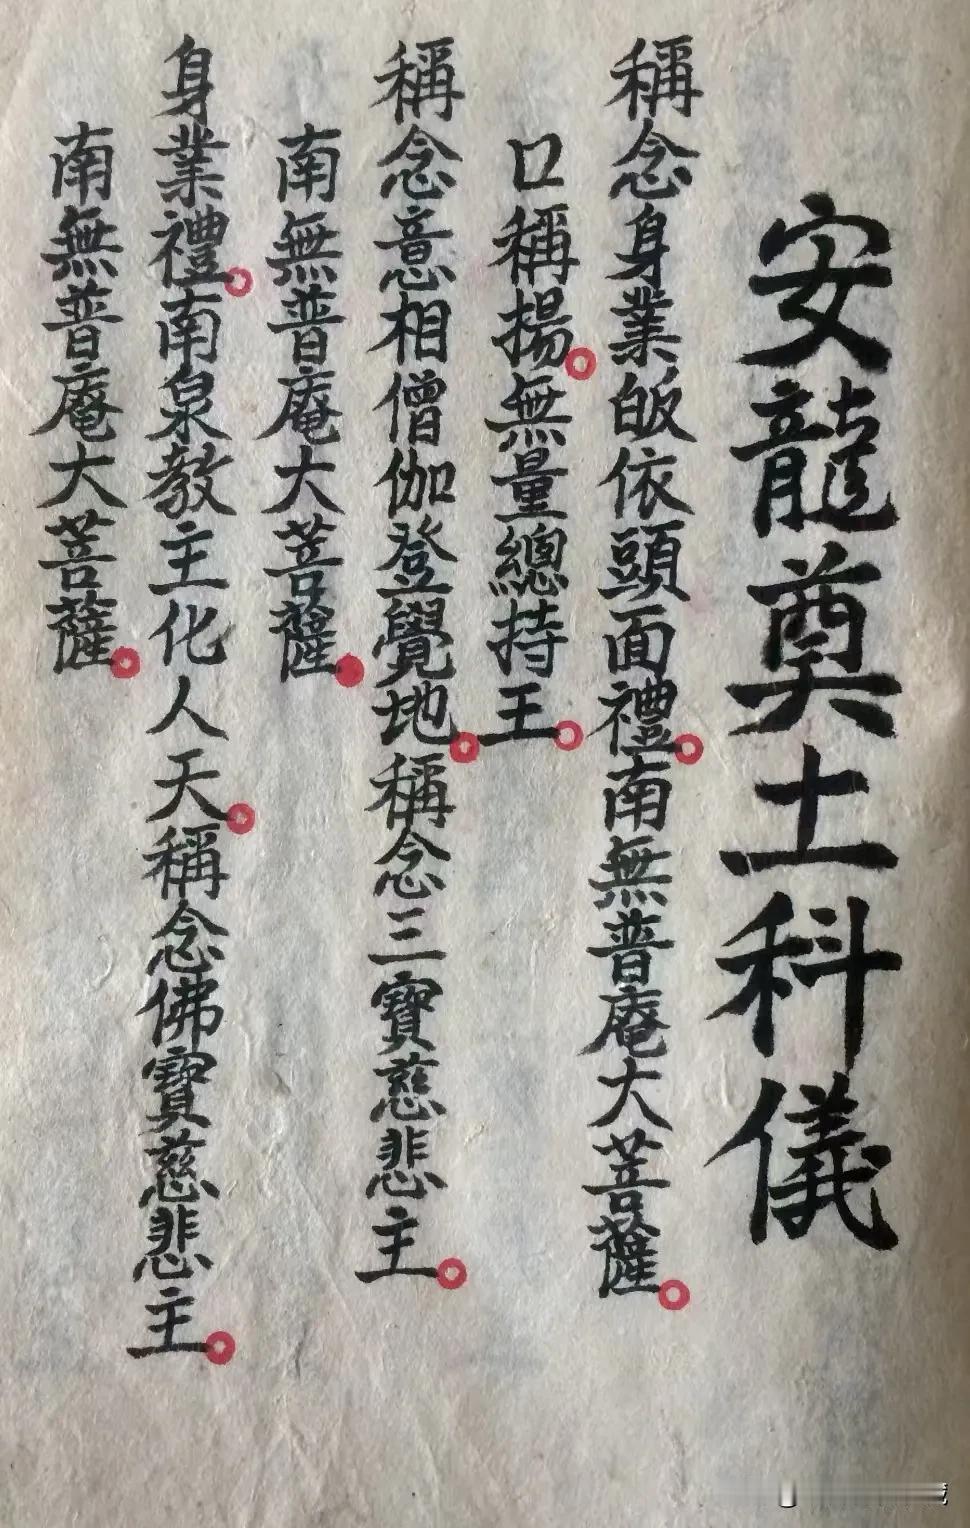 安龍奠土科儀
稱念身業皈依頭面禮。南無普庵大菩薩。
口稱揚。無量總持王。
稱念意相僧伽登覺地。稱念三寶慈悲主。
南無普庵大菩薩。
身業禮。南泉教主化人天。稱念佛寶慈悲主。
南無普庵大菩薩。